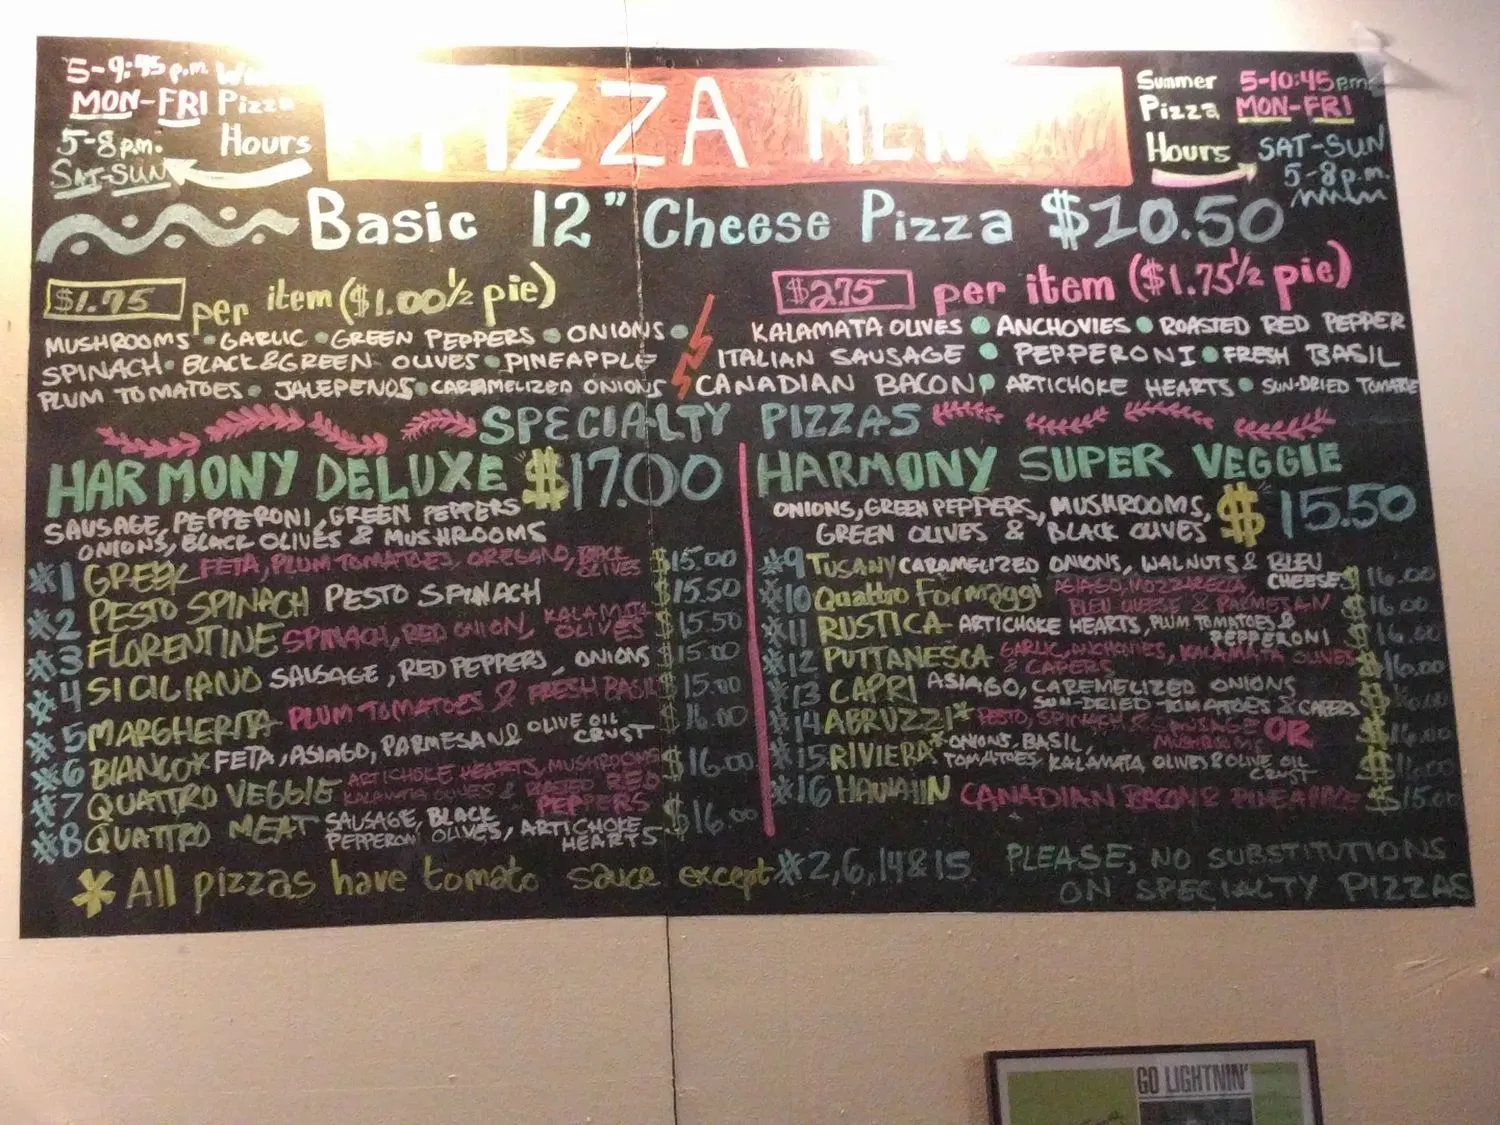 5-9:45 p.m.
MON-FRI Pizza
5-8 p.m. Hours
SAT-SUN
PIZZA MENU
Summer 5-10:45 pm
Pizza MON-FRI
Hours SAT-SUN
5-8 p.m.
Basic 12" Cheese Pizza $10.50
$1.75 per item ($1.00 1/2 pie)
MUSHROOMS • GARLIC • GREEN PEPPERS • ONIONS •
SPINACH • BLACK & GREEN OLIVES • PINEAPPLE
PLUM TOMATOES • JALEPENOS • CARAMELIZED ONIONS
$2.75 per item ($1.75 1/2 pie)
KALAMATA OLIVES • ANCHOVIES • ROASTED RED PEPPER
ITALIAN SAUSAGE • PEPPERONI • FRESH BASIL
CANADIAN BACON • ARTICHOKE HEARTS • SUN-DRIED TOMATOE
SPECIALTY PIZZAS
HARMONY DELUXE $17.00
SAUSAGE, PEPPERONI, GREEN PEPPERS
ONIONS, BLACK OLIVES & MUSHROOMS
#1 GREEK FETA, PLUM TOMATOES, OREGANO, BLACK OLIVES $15.00
#2 PESTO SPINACH PESTO SPINACH $15.50
#3 FLORENTINE SPINACH, RED ONION, KALAMATA OLIVES $15.50
#4 SICILIANO SAUSAGE, RED PEPPERS, ONIONS $15.00
#5 MARGHERITA PLUM TOMATOES & FRESH BASIL $15.00
#6 BIANCO* FETA, ASIAGO, PARMESAN & OLIVE OIL CRUST $16.00
#7 QUATTRO VEGGIE ARTICHOKE HEARTS, MUSHROOMS KALAMATA OLIVES & ROASTED RED PEPPERS $16.00
#8 QUATTRO MEAT SAUSAGE, BLACK PEPPERONI OLIVES, ARTICHOKE HEARTS $16.00
HARMONY SUPER VEGGIE
ONIONS, GREEN PEPPERS, MUSHROOMS, $15.50
GREEN OLIVES & BLACK OLIVES
#9 TUSANY CARAMELIZED ONIONS, WALNUTS & BLEU CHEESE $16.00
#10 Quattro Formaggi ASIAGO, MOZZARELLA, BLEU CHEESE & PARMESAN $16.00
#11 RUSTICA ARTICHOKE HEARTS, PLUM TOMATOES & PEPPERONI $16.00
#12 PUTTANESCA GARLIC, ANCHOVIES, KALAMATA OLIVES & CAPERS $16.00
#13 CAPRI ASIAGO, CAREMELIZED ONIONS SUN-DRIED TOMATOES & CAPERS
#14 ABRUZZI* PESTO, SPINACH & SAUSAGE OR MUSHROOMS $16.00
#15 RIVIERA* ONIONS, BASIL, TOMATOES, KALAMATA OLIVES & OLIVE OIL CRUST $16.00
#16 HAWAIIN CANADIAN BACON & PINEAPPLE $15.00
* All pizzas have tomato sauce except #2,6,14&15
PLEASE, NO SUBSTITUTIONS
ON SPECIALTY PIZZAS
GO LIGHTNIN'